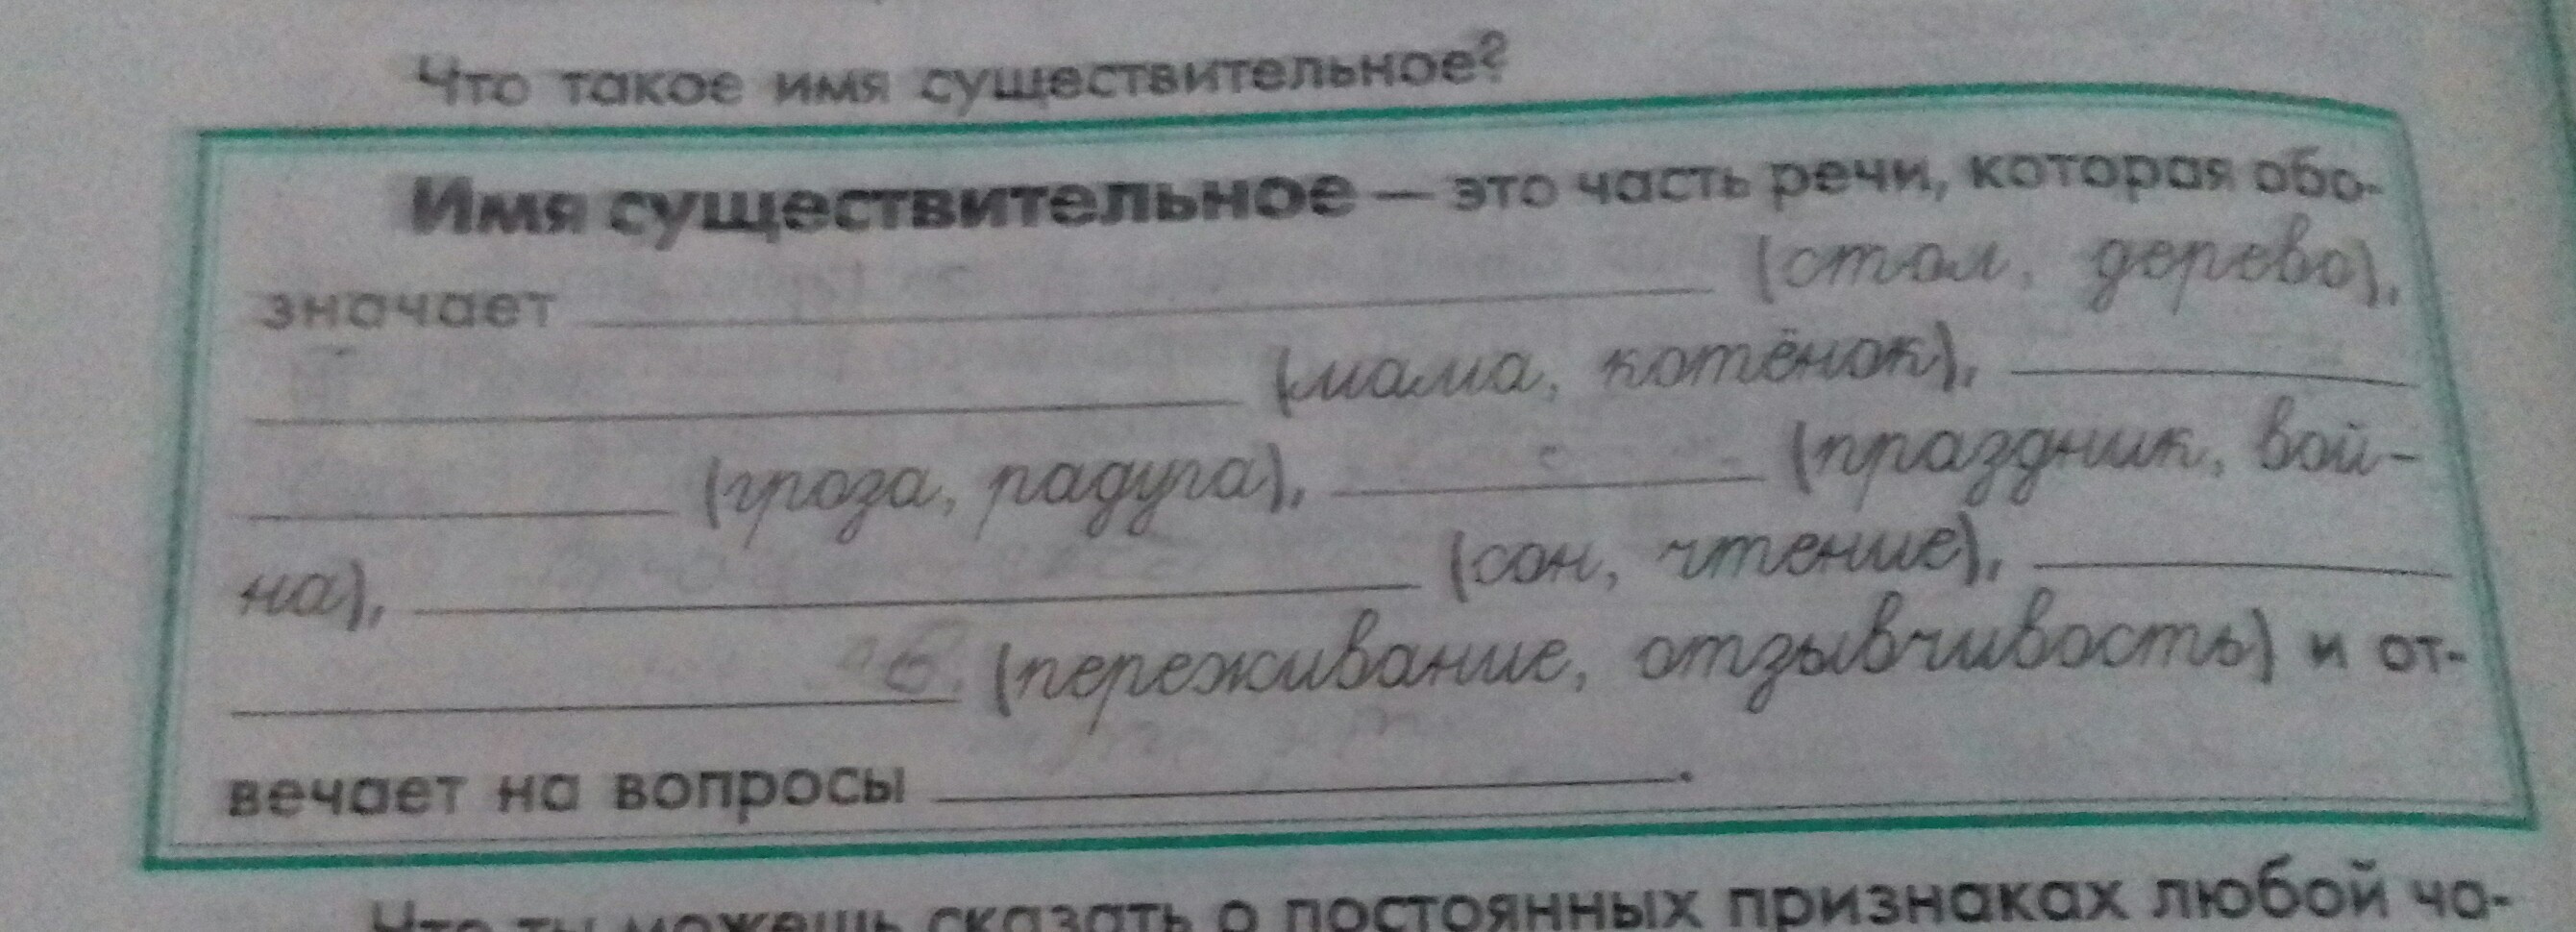 Что такое имя существительное?
Имя существительное — это часть речи, которая обо-
значает ____________ (стол, дерево),
____________ (мама, котёнок), ______
______ (гроза, радуга), ______ (праздник, вой-
на), ____________ (сон, чтение), ______
____________ (переживание, отзывчивость) и от-
вечает на вопросы ____________.
Что ты можешь сказать о постоянных признаках любой ча-